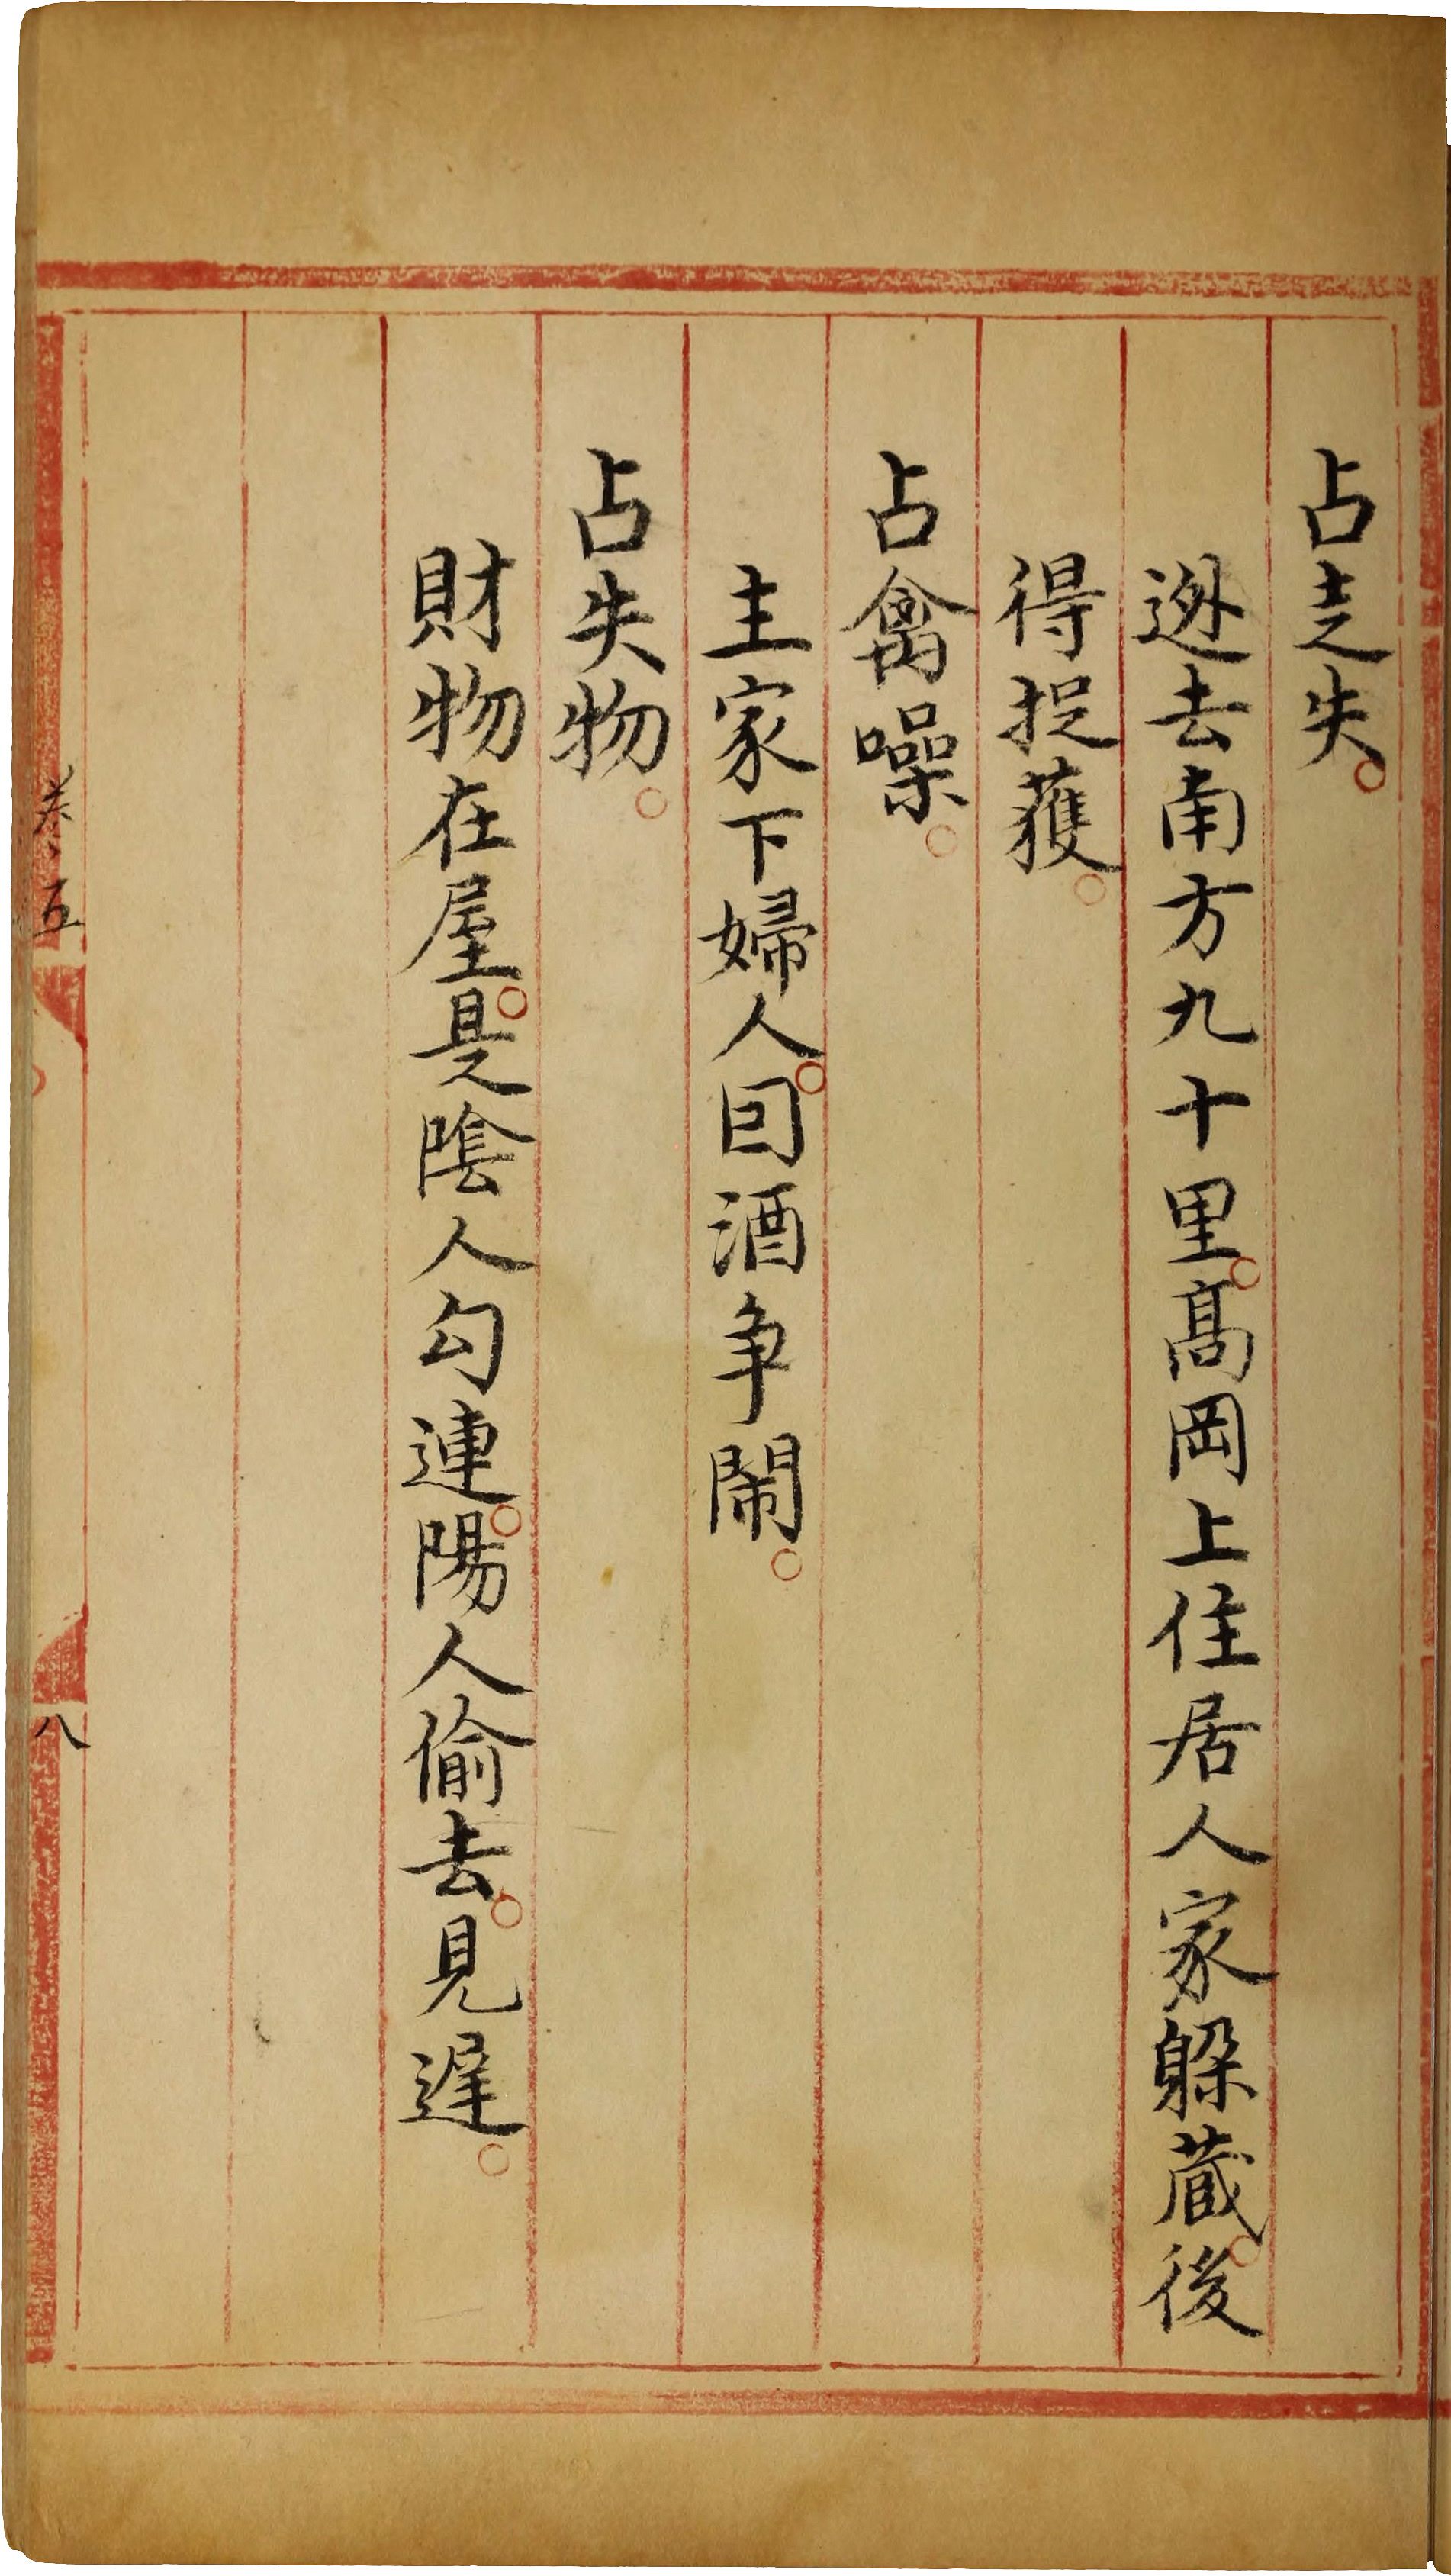 占走失。
逃去南方九十里。高岡上住居人家躲藏。後
得捉獲。
占禽噪。
主家下婦人。因酒争鬧。
占失物。
財物在屋。是陰人勾連。陽人偷去。見遲。
卷五
八